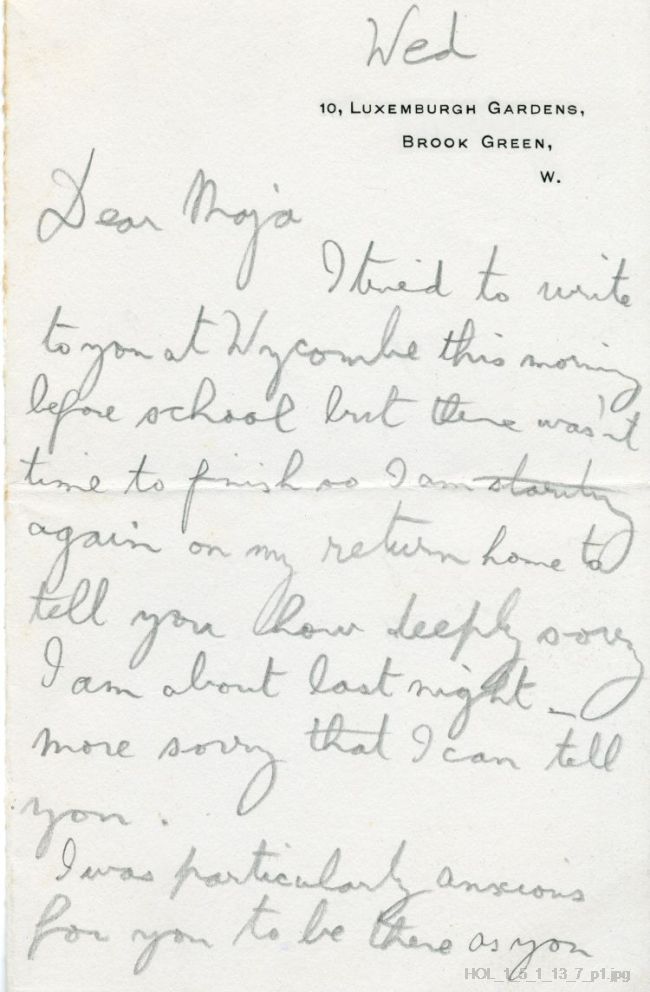 Wed
10, LUXEMBURGH GARDENS,
BROOK GREEN,
W.
Dear Moja
I tried to write
to you at Wycombe this morning
before school but there was'nt
time to finish so I am starting
again on my return home to
tell you how deeply sorry
I am about last night _
more sorry that I can tell
you.
I was particularly anxious
for you to be there as you
HOL_1_5_1_13_7_p1.jpg